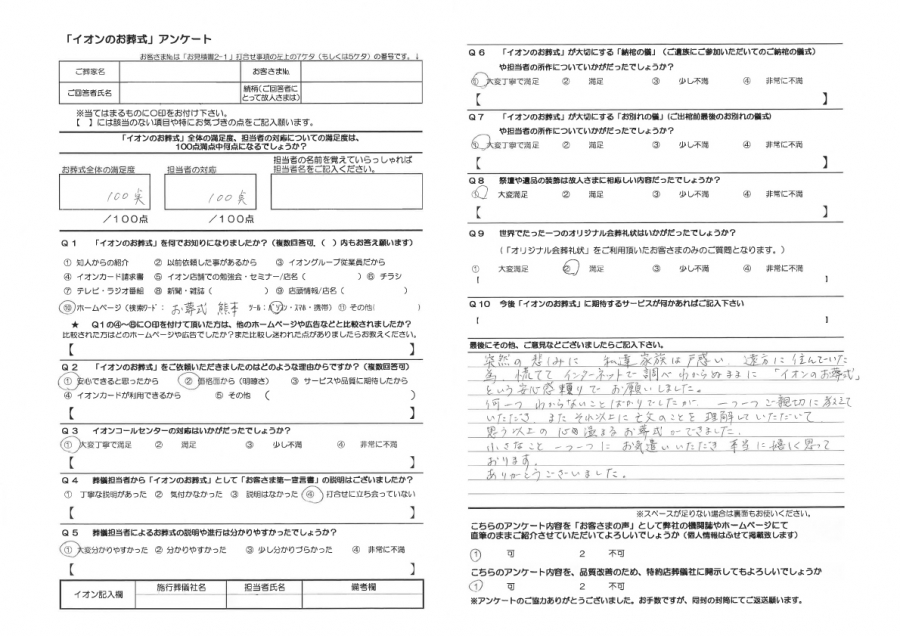 「イオンのお葬式」アンケート
お客さま№は「お見積書2-1」打合せ事項の左上の7ケタ(もしくは5ケタ)の番号です。↓
ご葬家名 お客さま№
ご回答者氏名 続柄(ご回答者にとって故人さまは)
※当てはまるものに〇印をお付け下さい。
【 】には該当のない項目や特にお気づきの点をご記入願います。
「イオンのお葬式」全体の満足度、担当者の対応についての満足度は、
100点満点中何点になるでしょうか?
お葬式全体の満足度 担当者の対応 担当者の名前を覚えていらっしゃれば担当者名をご記入ください。
100点 100点
/100点 /100点
Q1 「イオンのお葬式」を何でお知りになりましたか?(複数回答可、( )内もお答え願います)
① 知人からの紹介 ② 以前依頼した事があるから ③ イオングループ従業員だから
④ イオンカード請求書 ⑤ イオン店舗での勉強会・セミナー/店名( ) ⑥ チラシ
⑦ テレビ・ラジオ番組 ⑧ 新聞・雑誌( ) ⑨ 店頭情報/店名( )
⑩ ホームページ(検索ワード: お葬式 熊本 ツール:パソコン・スマホ・携帯) ⑪ その他( )
★ Q1の④~⑧に〇印を付けて頂いた方は、他のホームページや広告などと比較されましたか?
比較された方はどのホームページや広告でしたか?また比較し迷われた点がありましたらお教えください。
【 】
Q2 「イオンのお葬式」をご依頼いただきましたのはどのような理由からですか?(複数回答可)
① 安心できると思ったから ② 価格面から(明瞭さ) ③ サービスや品質に期待したから
④ イオンカードが利用できるから ⑤ その他 ( )
【 】
Q3 イオンコールセンターの対応はいかがだったでしょうか?
① 大変丁寧で満足 ② 満足 ③ 少し不満 ④ 非常に不満
【 】
Q4 葬儀担当者から「イオンのお葬式」として「お客さま第一宣言書」の説明はございましたか?
① 丁寧な説明があった ② 気付かなかった ③ 説明はなかった ④ 打合せに立ち会っていない
【 】
Q5 葬儀担当者によるお葬式の説明や進行は分かりやすかったでしょうか?
① 大変分かりやすかった ② 分かりやすかった ③ 少し分かりづらかった ④ 非常に不満
【 】
イオン記入欄 施行葬儀社名 担当者氏名 備考欄
Q6 「イオンのお葬式」が大切にする「納棺の儀」(ご遺族にご参加いただいてのご納棺の儀式)
や担当者の所作についていかがだったでしょうか?
① 大変丁寧で満足 ② 満足 ③ 少し不満 ④ 非常に不満
【 】
Q7 「イオンのお葬式」が大切にする「お別れの儀」(ご出棺前最後のお別れの儀式)
や担当者の所作についていかがだったでしょうか?
① 大変丁寧で満足 ② 満足 ③ 少し不満 ④ 非常に不満
【 】
Q8 祭壇や遺品の装飾は故人さまに相応しい内容だったでしょうか?
① 大変満足 ② 満足 ③ 少し不満 ④ 非常に不満
【 】
Q9 世界でたった一つのオリジナル会葬礼状はいかがだったでしょうか?
(「オリジナル会葬礼状」をご利用頂いたお客さまのみのご質問となります。)
① 大変満足 ② 満足 ③ 少し不満 ④ 非常に不満
[ ]
Q10 今後「イオンのお葬式」に期待するサービスが何かあればご記入下さい
[ ]
最後にその他、ご意見などございましたらご記入下さい。
突然の悲しみに 私達家族は戸惑い、遠方に住んでいた
為、慌ててインターネットで調べわからぬままに「イオンのお葬式」
という安心感頼りでお願いしました。
何一つわからないことばかりでしたが、一つ一つご親切に教えて
いただき、また それ以上に亡父のことを理解していただいて
思う以上の心温まるお葬式ができました。
小さなこと一つ一つにお気遣いいただき本当に嬉しく思って
おります。
ありがとうございました。
※スペースが足りない場合は裏面もお使いください。
こちらのアンケート内容を「お客さまの声」として弊社の機関誌やホームページにて
直筆のままご紹介させていただいてよろしいでしょうか(個人情報はふせて掲載致します)
1 可 2 不可
こちらのアンケート内容を、品質改善のため、特約店葬儀社に開示してもよろしいでしょうか
1 可 2 不可
※アンケートのご協力ありがとうございました。お手数ですが、同封の封筒にてご返送願います。